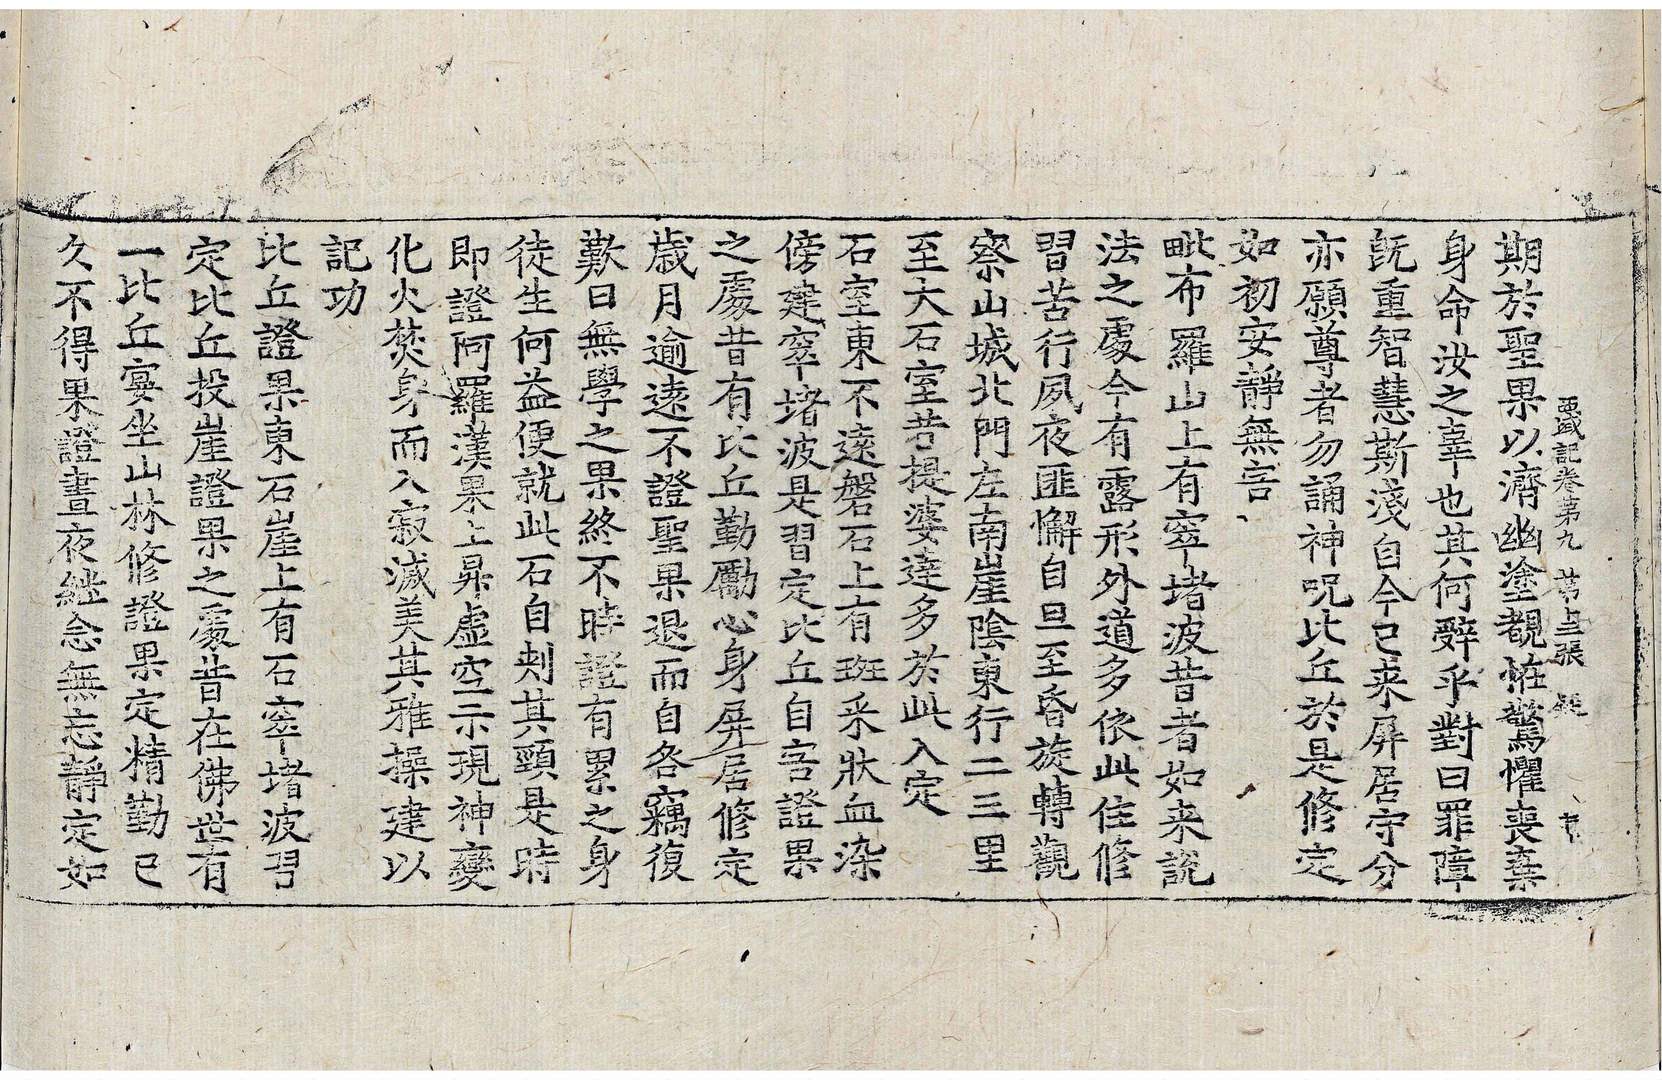 西域記卷第九 第十三張 疑
期於聖果以濟幽塗覩恠驚懼喪棄
身命汝之辜也其何辭乎對曰罪障
旣重智慧斯淺自今已来屏居守分
亦願尊者勿誦神呪比丘於是修定
如初安靜無害
毗布羅山上有窣堵波昔者如来說
法之處今有露形外道多依此住修
習苦行夙夜匪懈自旦至昏旋轉觀
察山城北門左南崖陰東行二三里
至大石室昔提婆達多於此入定
石室東不遠磐石上有斑采狀血染
傍建窣堵波是習定比丘自害證果
之處昔有比丘勤勵心身屏居修定
歲月逾遠不證聖果退而自咎竊復
歎曰無學之果終不時證有累之身
徒生何益便就此石自刺其頸是時
即證阿羅漢果上昇虛空示現神變
化火焚身而入寂滅美其雅操建以
記功
比丘證果東石崖上有石窣堵波習
定比丘投崖證果之處昔在佛世有
一比丘宴坐山林修證果定精勤已
久不得果證晝夜継念無忘靜定如